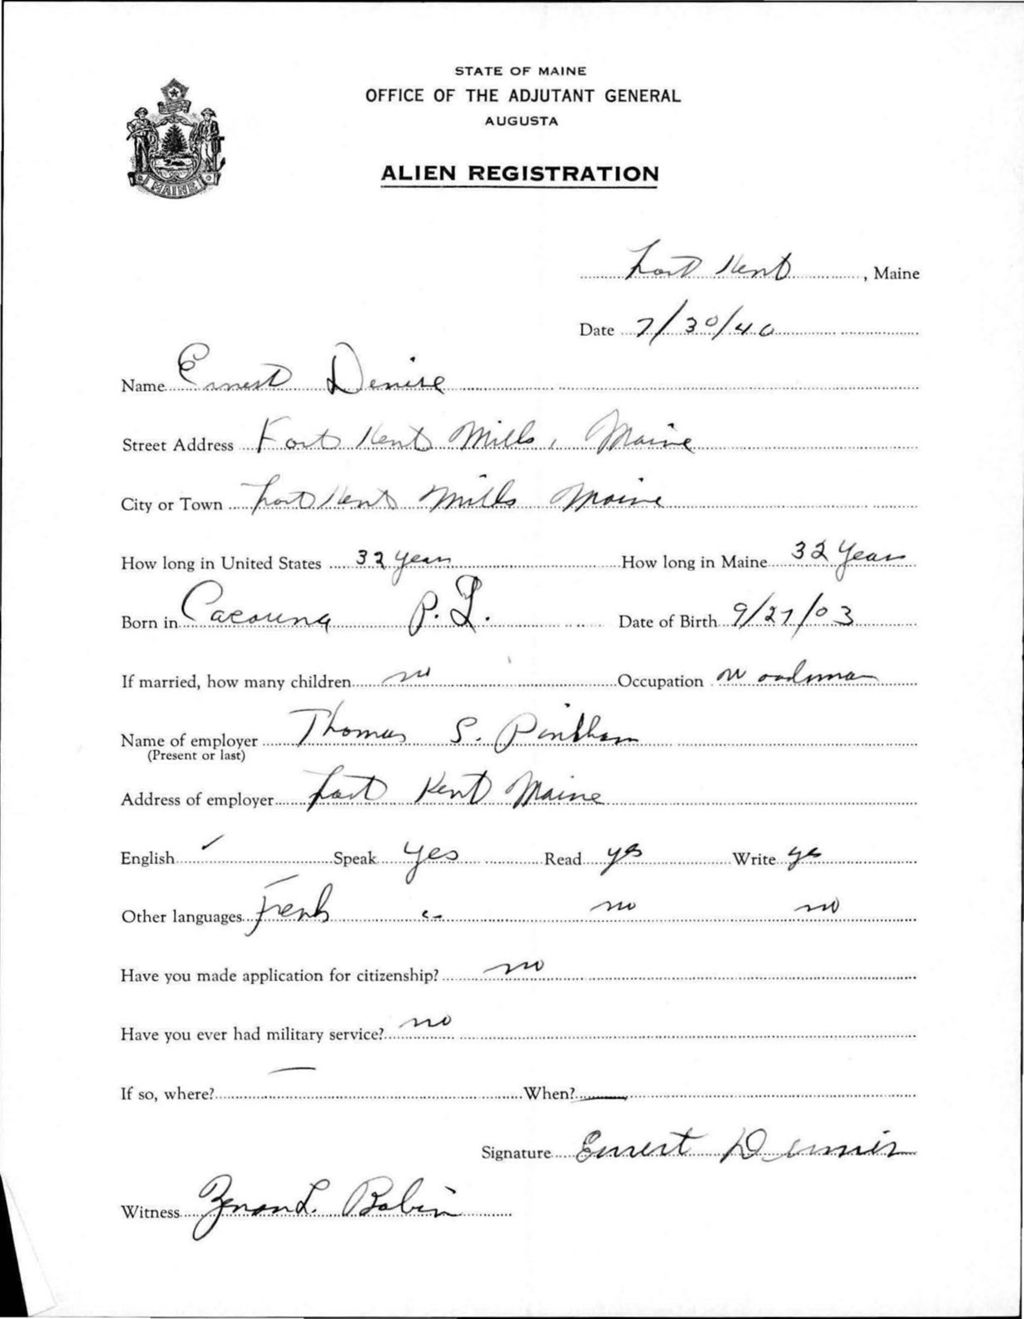 STATE OF MAINE
OFFICE OF THE ADJUTANT GENERAL
AUGUSTA
ALIEN REGISTRATION
MAINE
Fort Kent, Maine
Date 7/30/40
Name Ernest Denise
Street Address Fort Kent Mills, Maine
City or Town Fort Kent Mills Maine
How long in United States 32 years How long in Maine 32 years
Born in Cacouna P. Q. Date of Birth 9/27/03
If married, how many children no Occupation Woodsman
Name of employer Thomas S. Pinkham
(Present or last)
Address of employer Fort Kent Maine
English ✓ Speak Yes Read yes Write yes
Other languages French no no
Have you made application for citizenship? no
Have you ever had military service? no
If so, where? — When? —
Signature Ernest
Witness L. Babin